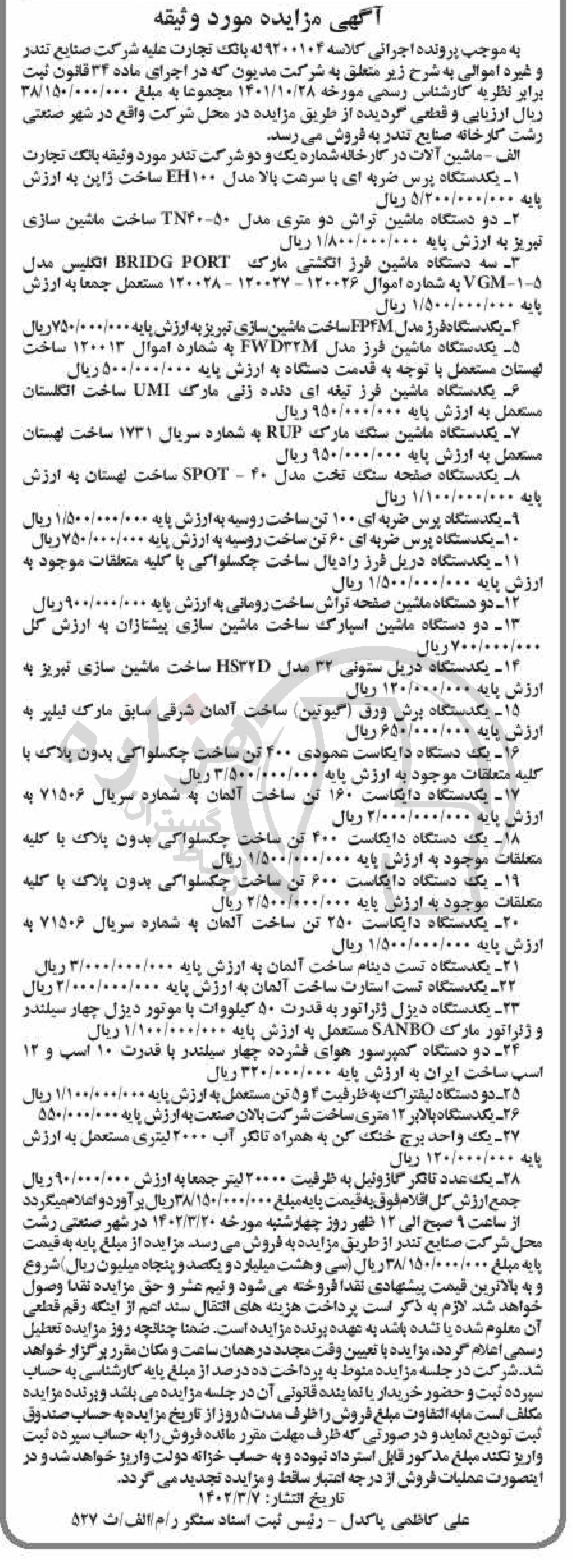 آگهی مزایده مورد وثیقه
به موجب پرونده اجرائی کلاسه ۹۲۰۰۱۰۴ له بانک تجارت علیه شرکت صنایع تندر
و غیره اموالی به شرح زیر متعلق به شرکت مدیون که در اجرای ماده ۳۴ قانون ثبت
برابر نظریه کارشناس رسمی مورخه ۱۴۰۱/۱۰/۲۸ مجموعا به مبلغ ۳۸/۱۵۰/۰۰۰/۰۰۰
ریال ارزیابی و قطعی گردیده از طریق مزایده در محل شرکت واقع در شهر صنعتی
رشت کارخانه صنایع تندر به فروش می رسد.
الف - ماشین آلات در کارخانه شماره یک و دو شرکت تندر مورد وثیقه بانک تجارت
۱ـ یکدستگاه پرس ضربه ای با سرعت بالا مدل EH۱۰۰ ساخت ژاپن به ارزش
پایه ۵/۲۰۰/۰۰۰/۰۰۰ ریال
۲ـ دو دستگاه ماشین تراش دو متری مدل TN۴۰-۵۰ ساخت ماشین سازی
تبریز به ارزش پایه ۱/۸۰۰/۰۰۰/۰۰۰ ریال
۳ـ سه دستگاه ماشین فرز انگشتی مارک BRIDG PORT انگلیس مدل
VGM-۱-۵ به شماره اموال ۱۲۰۰۲۶ - ۱۲۰۰۲۷ - ۱۲۰۰۲۸ مستعمل جمعا به ارزش
پایه ۱/۵۰۰/۰۰۰/۰۰۰ ریال
۴ـ یکدستگاه فرز مدل FP۴M ساخت ماشین سازی تبریز به ارزش پایه ۷۵۰/۰۰۰/۰۰۰ ریال
۵ـ یکدستگاه ماشین فرز مدل FWD۳۲M به شماره اموال ۱۲۰۰۱۳ ساخت
لهستان مستعمل با توجه به قدمت دستگاه به ارزش پایه ۵۰۰/۰۰۰/۰۰۰ ریال
۶ـ یکدستگاه ماشین فرز تیغه ای دنده زنی مارک UMI ساخت انگلستان
مستعمل به ارزش پایه ۹۵۰/۰۰۰/۰۰۰ ریال
۷ـ یکدستگاه ماشین سنگ مارک RUP به شماره سریال ۱۷۳۱ ساخت لهستان
مستعمل به ارزش پایه ۹۵۰/۰۰۰/۰۰۰ ریال
۸ـ یکدستگاه صفحه سنگ تخت مدل SPOT - ۴۰ ساخت لهستان به ارزش
پایه ۱/۱۰۰/۰۰۰/۰۰۰ ریال
۹ـ یکدستگاه پرس ضربه ای ۱۰۰ تن ساخت روسیه به ارزش پایه ۱/۵۰۰/۰۰۰/۰۰۰ ریال
۱۰ـ یکدستگاه پرس ضربه ای ۶۰ تن ساخت روسیه به ارزش پایه ۷۵۰/۰۰۰/۰۰۰ ریال
۱۱ـ یکدستگاه دریل فرز رادیال ساخت چکسلواکی با کلیه متعلقات موجود به
ارزش پایه ۱/۵۰۰/۰۰۰/۰۰۰ ریال
۱۲ـ دو دستگاه ماشین صفحه تراش ساخت رومانی به ارزش پایه ۹۰۰/۰۰۰/۰۰۰ ریال
۱۳ـ دو دستگاه ماشین اسپارک ساخت ماشین سازی پیشتازان به ارزش کل
۷۰۰/۰۰۰/۰۰۰ ریال
۱۴ـ یکدستگاه دریل ستونی ۳۲ مدل HS۳۲D ساخت ماشین سازی تبریز به
ارزش پایه ۱۲۰/۰۰۰/۰۰۰ ریال
۱۵ـ یکدستگاه برش ورق (گیوتین) ساخت آلمان شرقی سابق مارک نیلپر به
ارزش پایه ۶۵۰/۰۰۰/۰۰۰ ریال
۱۶ـ یک دستگاه دایکاست عمودی ۴۰۰ تن ساخت چکسلواکی بدون پلاک با
کلیه متعلقات موجود به ارزش پایه ۳/۵۰۰/۰۰۰/۰۰۰ ریال
۱۷ـ یکدستگاه دایکاست ۱۶۰ تن ساخت آلمان به شماره سریال ۷۱۵۰۶ به
ارزش پایه ۲/۰۰۰/۰۰۰/۰۰۰ ریال
۱۸ـ یک دستگاه دایکاست ۴۰۰ تن ساخت چکسلواکی بدون پلاک با کلیه
متعلقات موجود به ارزش پایه ۱/۵۰۰/۰۰۰/۰۰۰ ریال
۱۹ـ یک دستگاه دایکاست ۶۰۰ تن ساخت چکسلواکی بدون پلاک با کلیه
متعلقات موجود به ارزش پایه ۲/۵۰۰/۰۰۰/۰۰۰ ریال
۲۰ـ یکدستگاه دایکاست ۲۵۰ تن ساخت آلمان به شماره سریال ۷۱۵۰۶ به
ارزش پایه ۱/۵۰۰/۰۰۰/۰۰۰ ریال
۲۱ـ یکدستگاه تست دینام ساخت آلمان به ارزش پایه ۳/۰۰۰/۰۰۰/۰۰۰ ریال
۲۲ـ یکدستگاه تست استارت ساخت آلمان به ارزش پایه ۲/۰۰۰/۰۰۰/۰۰۰ ریال
۲۳ـ یکدستگاه دیزل ژنراتور به قدرت ۵۰ کیلووات با موتور دیزل چهار سیلندر
و ژنراتور مارک SANBO مستعمل به ارزش پایه ۱/۱۰۰/۰۰۰/۰۰۰ ریال
۲۴ـ دو دستگاه کمپرسور هوای فشرده چهار سیلندر با قدرت ۱۰ اسب و ۱۲
اسب ساخت ایران به ارزش پایه ۳۲۰/۰۰۰/۰۰۰ ریال
۲۵ـ دو دستگاه لیفتراک به ظرفیت ۴ و ۵ تن مستعمل به ارزش پایه ۱/۱۰۰/۰۰۰/۰۰۰ ریال
۲۶ـ یکدستگاه بالابر ۱۲ متری ساخت شرکت بالان صنعت به ارزش پایه ۵۵۰/۰۰۰/۰۰۰
۲۷ـ یک واحد برج خنک کن به همراه تانکر آب ۲۰۰۰ لیتری مستعمل به ارزش
پایه ۱۲۰/۰۰۰/۰۰۰ ریال
۲۸ـ یک عدد تانکر گازوئیل به ظرفیت ۲۰۰۰۰ لیتر جمعا به ارزش ۹۰/۰۰۰/۰۰۰ ریال
جمع ارزش کل اقلام فوق به قیمت پایه مبلغ ۳۸/۱۵۰/۰۰۰/۰۰۰ ریال برآورد و اعلام میگردد
از ساعت ۹ صبح الی ۱۲ ظهر روز چهارشنبه مورخه ۱۴۰۲/۳/۲۰ در شهر صنعتی رشت
محل شرکت صنایع تندر از طریق مزایده به فروش می رسد. مزایده از مبلغ پایه به قیمت
پایه مبلغ ۳۸/۱۵۰/۰۰۰/۰۰۰ ریال (سی و هشت میلیارد و یکصد و پنجاه میلیون ریال) شروع
و به بالاترین قیمت پیشنهادی نقدا فروخته می شود و نیم عشر و حق مزایده نقدا وصول
خواهد شد. لازم به ذکر است پرداخت هزینه های انتقال سند اعم از اینکه رقم قطعی
آن معلوم شده یا نشده باشد به عهده برنده مزایده است. ضمنا چنانچه روز مزایده تعطیل
رسمی اعلام گردد، مزایده با تعیین وقت مجدد در همان ساعت و مکان مقرر برگزار خواهد
شد. شرکت در جلسه مزایده منوط به پرداخت ده درصد از مبلغ پایه کارشناسی به حساب
سپرده ثبت و حضور خریدار یا نماینده قانونی آن در جلسه مزایده می باشد و برنده مزایده
مکلف است مابه التفاوت مبلغ فروش را ظرف مدت ۵ روز از تاریخ مزایده به حساب صندوق
ثبت تودیع نماید و در صورتی که ظرف مهلت مقرر مانده فروش را به حساب سپرده ثبت
واریز نکند مبلغ مذکور قابل استرداد نبوده و به حساب خزانه دولت واریز خواهد شد و در
اینصورت عملیات فروش از درجه اعتبار ساقط و مزایده تجدید می گردد.
تاریخ انتشار: ۱۴۰۲/۳/۷
علی کاظمی پاکدل - رئیس ثبت اسناد سنگر ر/م/الف/ث ۵۲۷